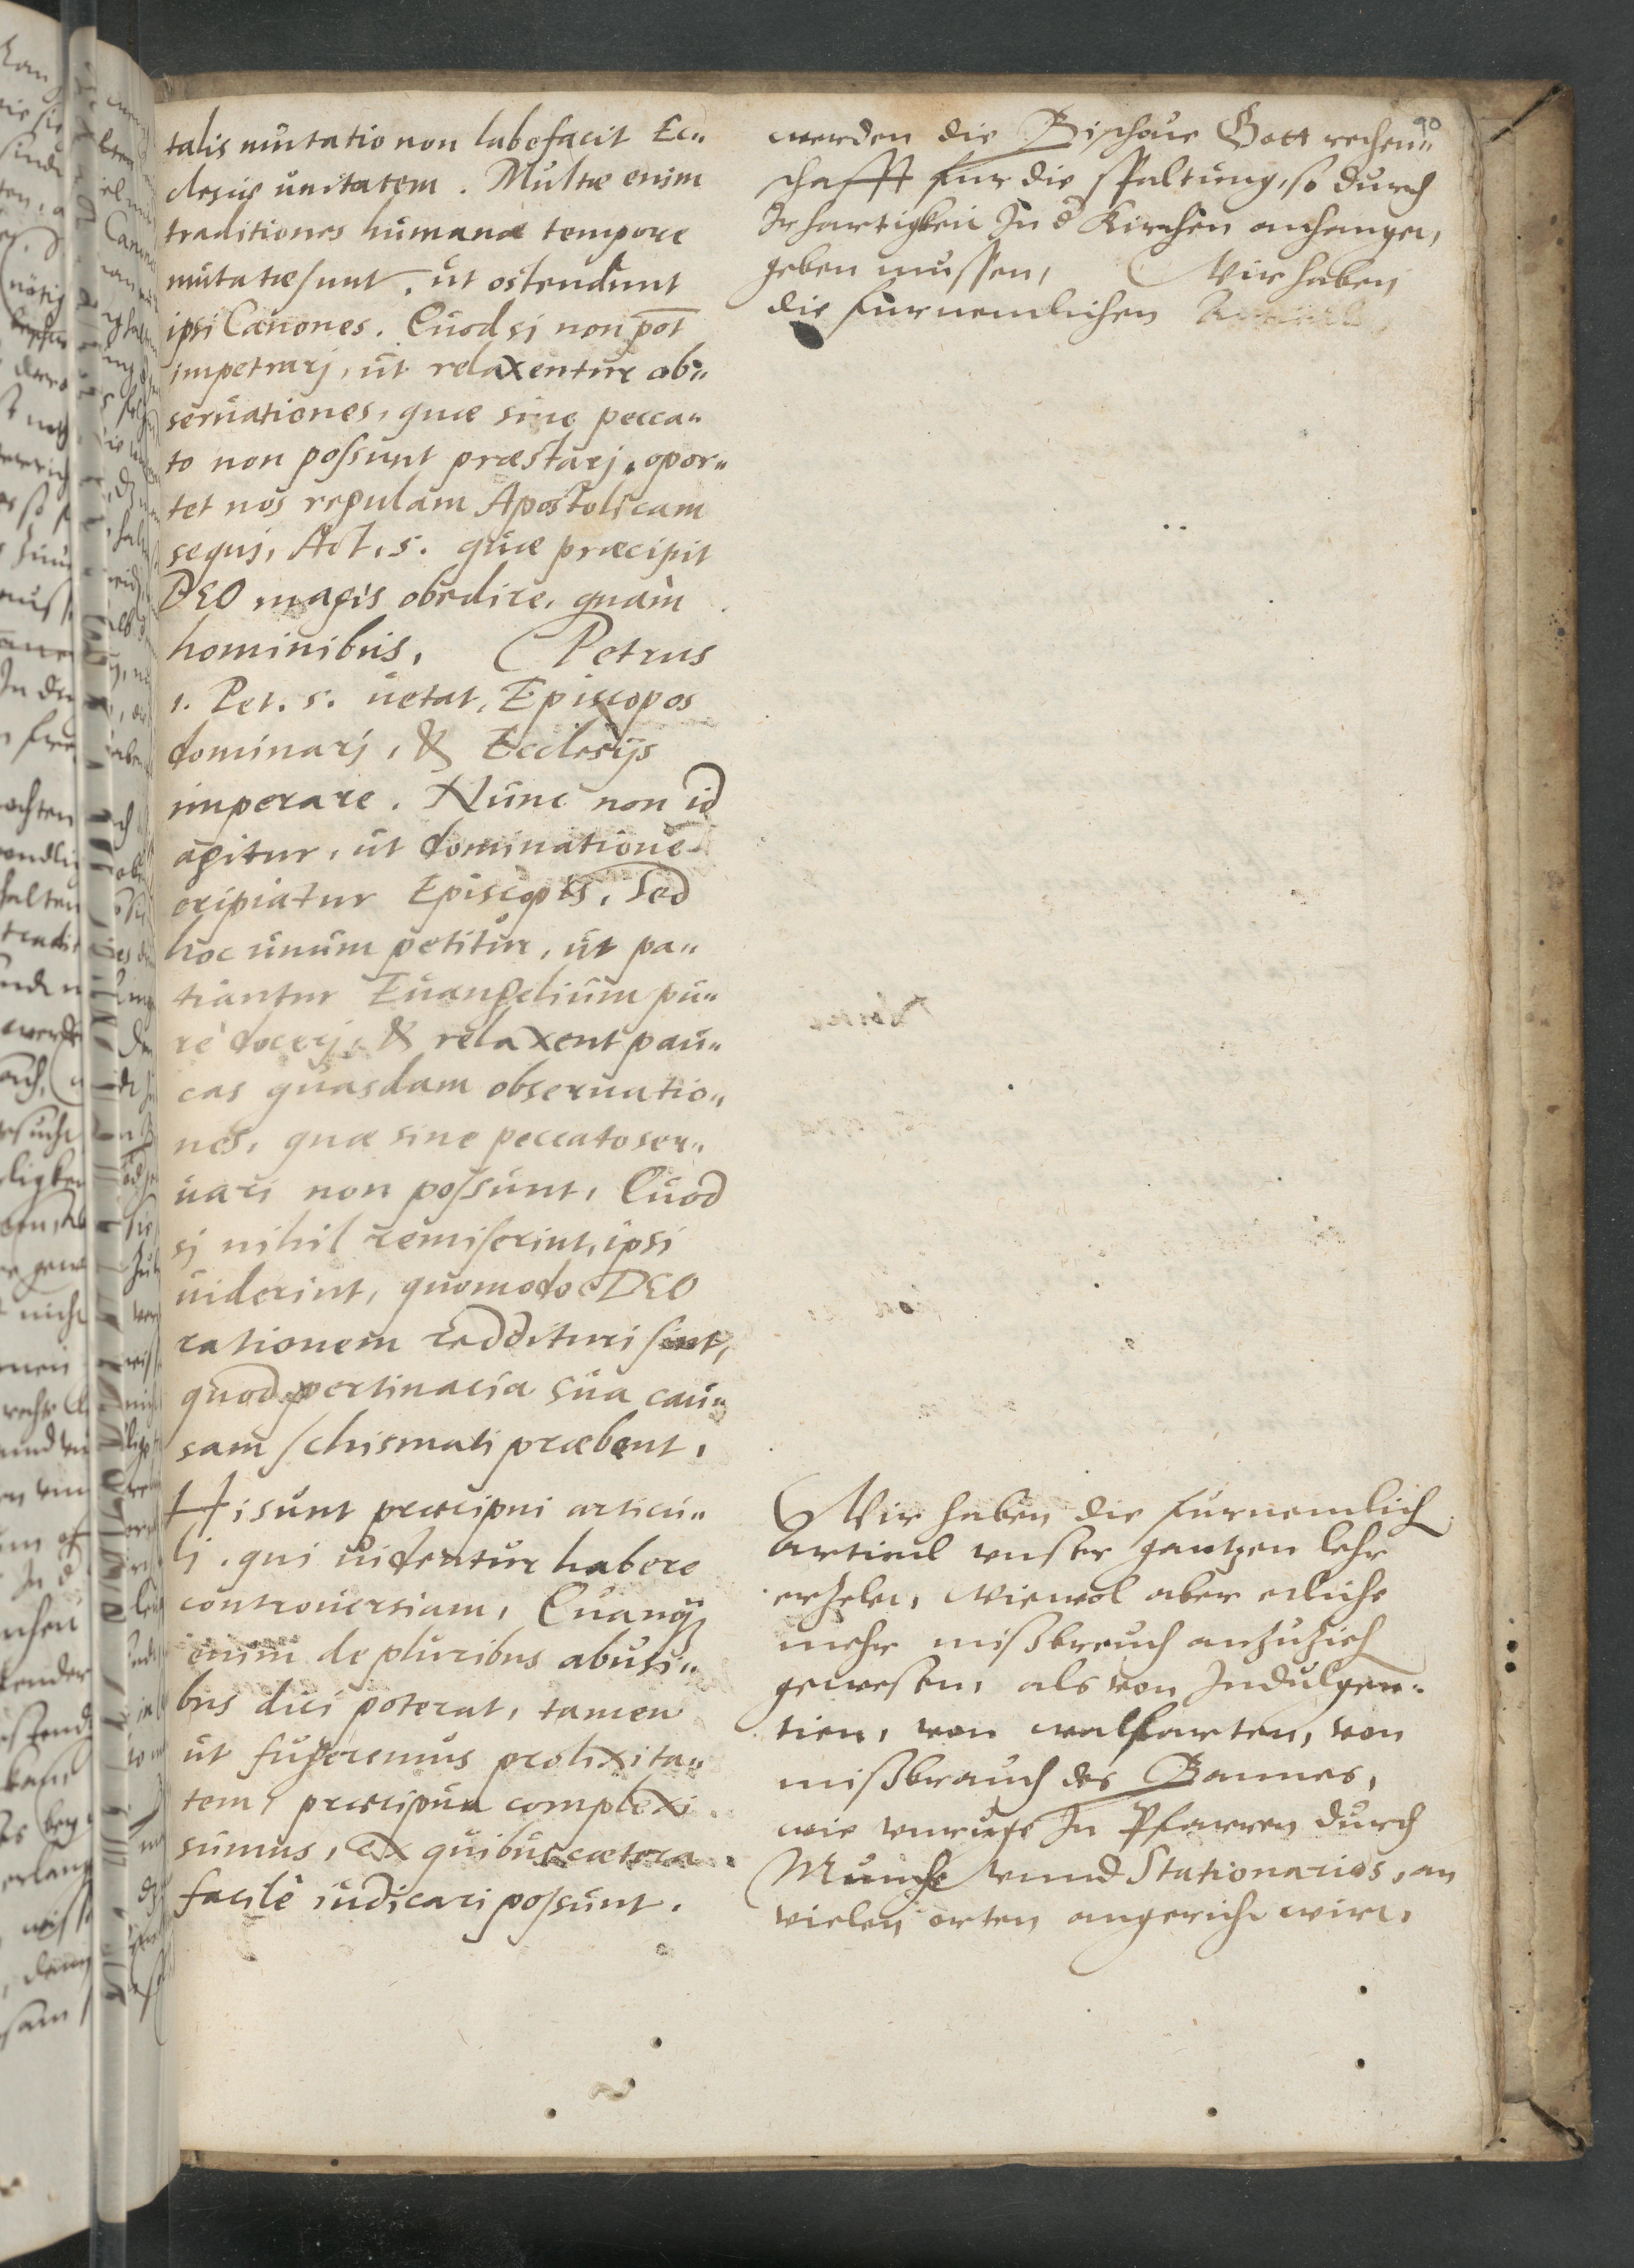 talis mutatio non labefacit Ec„
clesiæ ùnitatem. Multæ enim
traditiones hùmanæ tempore
mùtatæ sunt, ùt ostendùnt
ipsi Canones. Quod si non põt
impetrarj, ùt relaxentùr ob„
serùationes, quæ sine pecca„
to non possunt præstarj, opor„
tet nos regulam Apostolicam
sequj, Act. 5. qùæ præcipit
DEO magis obedire, quàm
hominibus. Petrus
1. Pet. 5. ùetat, Episcopos
dominarj, & Ecclesijs
imperare. Nùnc non id
agitur, ùt dominatione
eripiatur Episcopis, Sed
hoc ùnùm petitùr, ùt pa„
tiantur Eùangeliùm pu„
rè docerj, & relaxent paù„
cas qùasdam obseruatio„
nes, quæ sine peccato ser„
ùari non possùnt, Qùod
sj nihil remiserint, ipsi
ùiderint, quomodo DEO
rationem reddituri sint,
quod pertinacia sùa caù„
sam schismati præbent.
Hi sùnt præcipui articù„
lj, qui ùidentùr habere
controùersiam, Qùanq̃
enim de pluribus abusi„
bus dici poterat, tamen
ùt fugeremus prolixita„
tem, præcipùa complexi
sùmus, ex quibùs cætera
facilè iùdicari possùnt.
90
werden die Bischoue Gott rechen„
schafft fur die spaltung, so durch
Ir hartigkeit In d̃ Kirchen anhangen,
geben mussen, Wir haben
die furnemlichen
Wir haben die furnemlich
Articul vnser gantzen lehr
erzelet, Wiewol aber etliche
mehr mißbreuch anzuzieh
gewesen, als von Indulgen„
tien, von walfarten, von
mißbrauch des Bannes,
wie vnruge In Pfarren durch
Munche vnnd Stationarios, an
vielen orten angericht wirt,